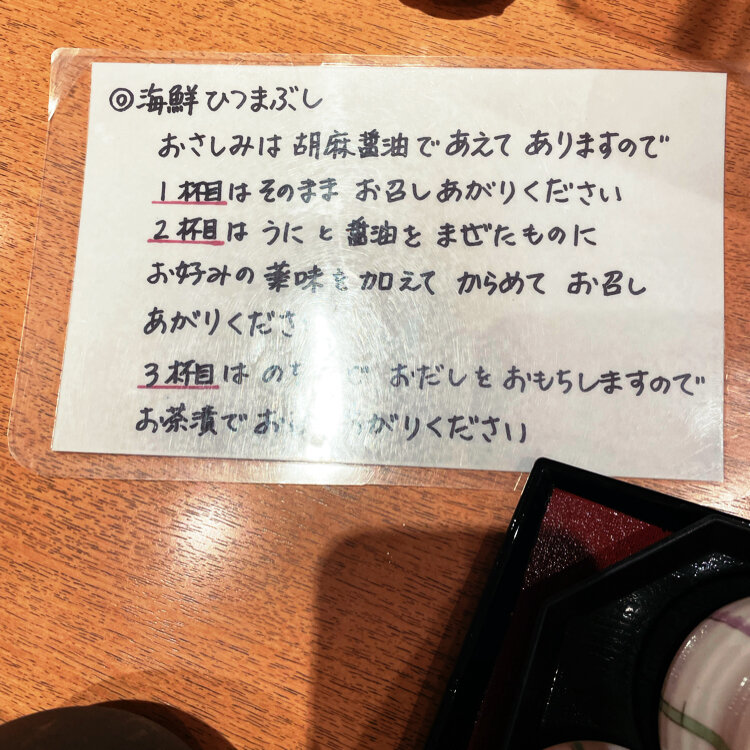 ◎海鮮ひつまぶし
おさしみは胡麻醤油であえてありますので
1杯目はそのままお召しあがりください
2杯目はうにと醤油をまぜたものに
お好みの薬味を加えてからめてお召し
あがりくださ
3杯目はの でおだしをおもちしますので
お茶漬でお がりください